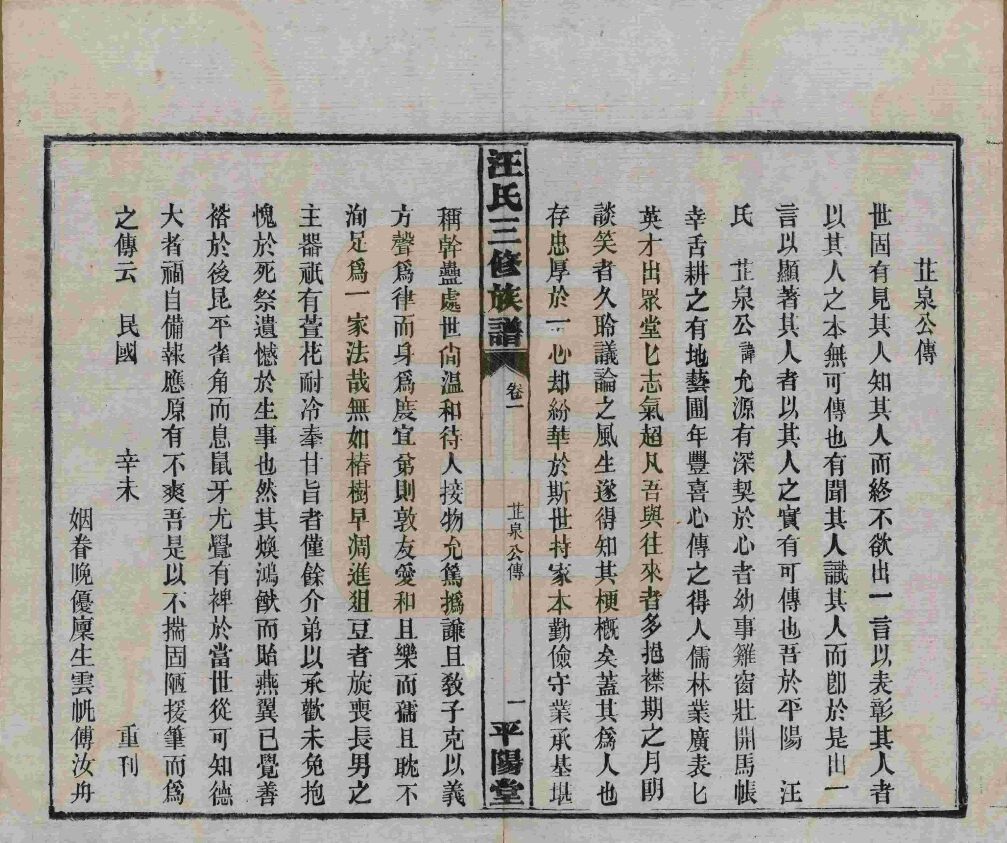 芷泉公傳
世固有見其人知其人而終不欲出一言以表彰其人者
以其人之本無可傳也有聞其人識其人而卽於是出一
言以顯著其人者以其人之實有可傳也吾於平陽　汪
氏　芷泉公諱允源有深契於心者幼事雞窗壯開馬帳
幸舌耕之有地藝圃年豐喜心傳之得人儒林業廣表匕
英才出眾堂匕志氣超凡吾與往來者多抱襟期之月朗
談笑者久聆議論之風生遂得知其梗槪矣蓋其爲人也
存忠厚於一心却紛華於斯世持家本勤儉守業承基堪
汪氏三修族譜
卷一
芷泉公傳
一
平陽堂
稱幹蠱處世尙溫和待人接物允篤撝謙且敎子克以義
方聲爲律而身爲度宜弟則敦友愛和且樂而孺且耽不
洵足爲一家法哉無如椿樹早凋進狙豆者旋喪長男之
主器祇有萱花耐冷奉甘旨者僅餘介弟以承歡未免抱
愧於死祭遺憾於生事也然其煥鴻猷而貽燕翼已覺善
褣於後昆平雀角而息鼠牙尤覺有裨於當世從可知德
大者福自備報應原有不爽吾是以不揣固陋援筆而爲
之傳云　民國　辛未　重刊
姻眷晚優廩生雲帆傅汝舟